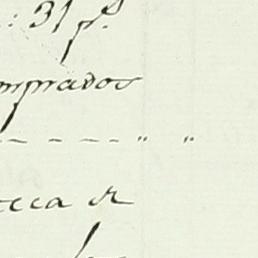 : 31 p.^s
mprados
- - - - - " "
cca de